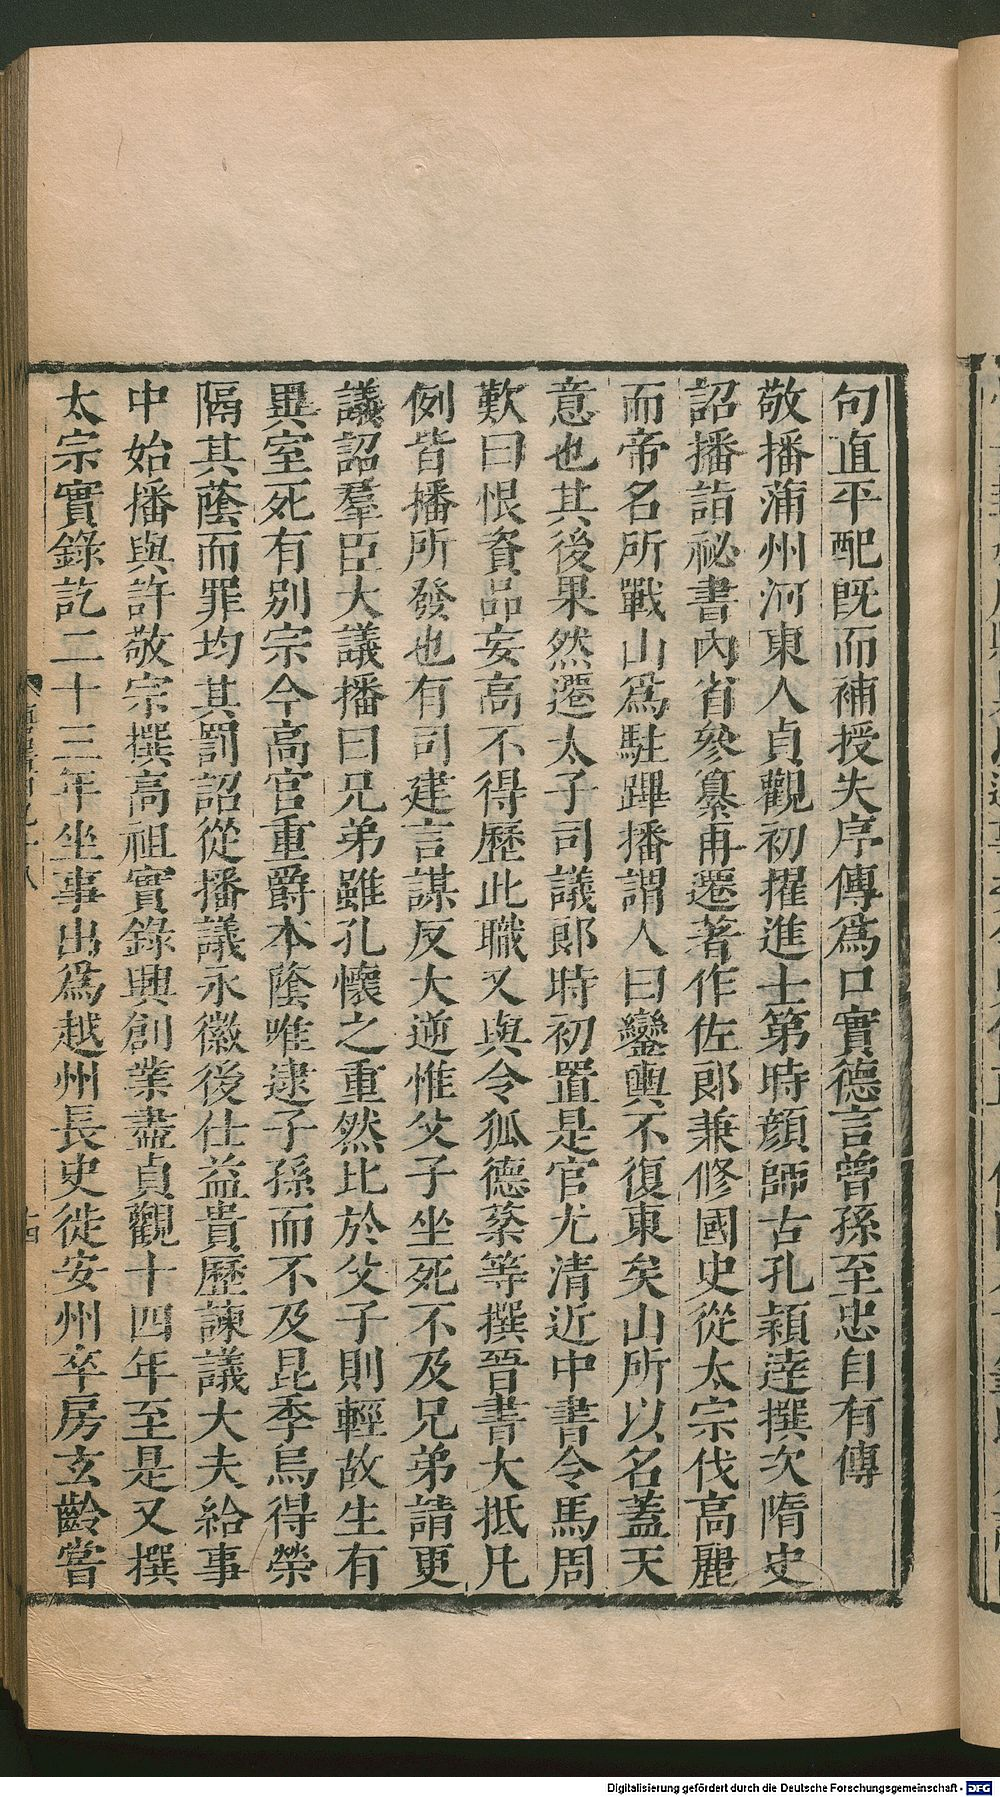 句直平配既而補授失序傳爲口實德言曾孫至忠自有傳
敬播蒲州河東人貞觀初擢進士第時顏師古孔穎達撰次隋史
詔播詣祕書內省參纂再遷著作佐郎兼修國史從太宗伐高麗
而帝名所戰山爲駐蹕播謂人曰鑾輿不復東矣山所以名蓋天
意也其後果然遷太子司議郎時初置是官尤清近中書令馬周
歎曰恨資品妄高不得歷此職又與令狐德棻等撰晉書大抵凡
例皆播所發也有司建言謀反大逆惟父子坐死不及兄弟請更
議詔羣臣大議播曰兄弟雖孔懷之重然比於父子則輕故生有
異室死有別宗今高官重爵本蔭唯逮子孫而不及昆季烏得榮
隔其蔭而罪均其罰詔從播議永徽後仕益貴歷諫議大夫給事
中始播與許敬宗撰高祖實錄興創業盡貞觀十四年至是又撰
太宗實錄訖二十三年坐事出爲越州長史徙安州卒房玄齡嘗
十四
Digitalisierung gefördert durch die Deutsche Forschungsgemeinschaft - DFG